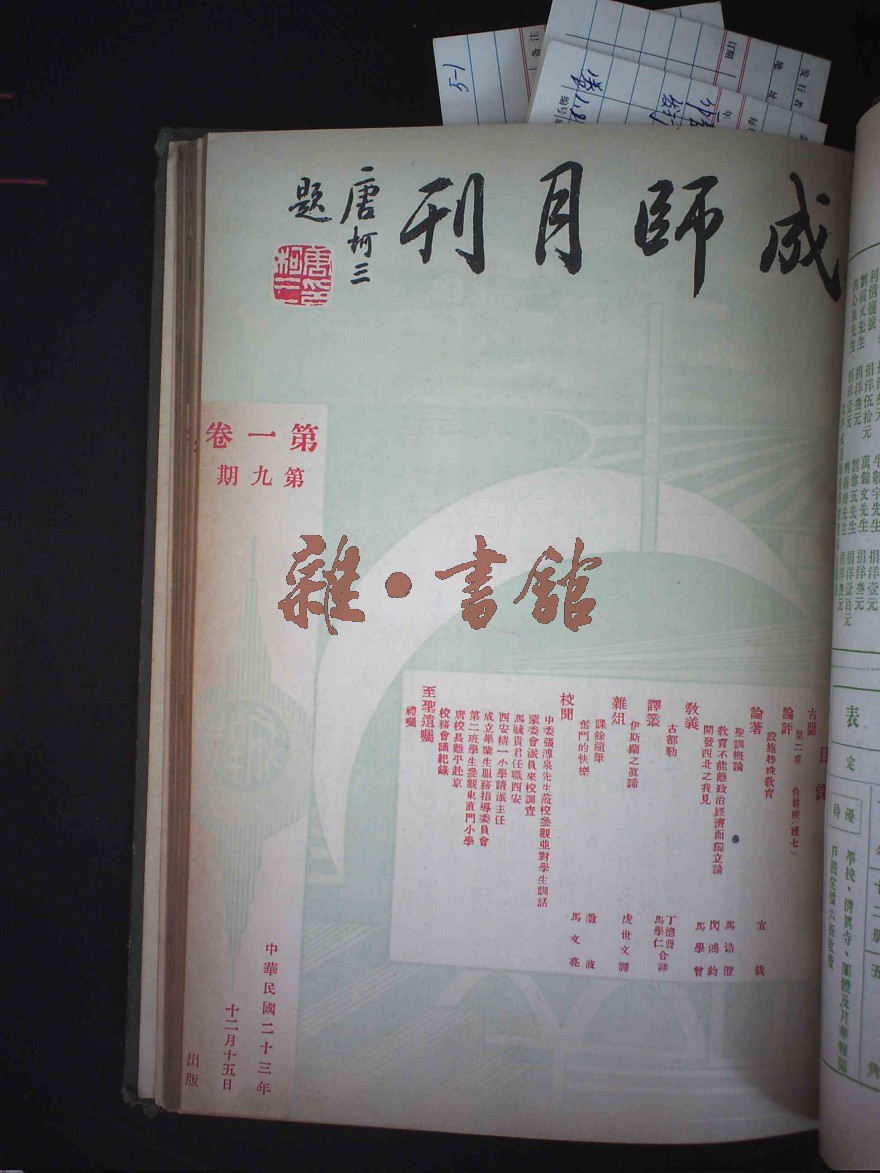 成師月刊
唐柯三
題
第一卷
第九期
雜·書館
目錄
古蘭
第二章
論評
設施特殊教育
宜哉
論著
聖訓概論
馬造澄
教育不能離政治經濟而獨立論
閃鴻鈞
開發西北之我見
馬學曾
教義
古都勒
丁德普
馬學仁合譯
譯叢
伊斯蘭之真諦
虎世文譯
雜俎
課餘隨筆
奮鬥的快樂
馬文亮
校聞
中委張溥泉先生蒞校參觀並對學生訓話
蒙委會派員來校調查
馬毓貴君任職西安
西安精一小學請派主任
成立畢業生服務指導委員會
第二班學生參觀東直門小學
唐校長離平赴京
校務會議紀錄
至聖遺囑
禮囑
中華民國二十三年
十二月十五日
出版
表
定
優待
學校、清真寺、團體及月華報閱